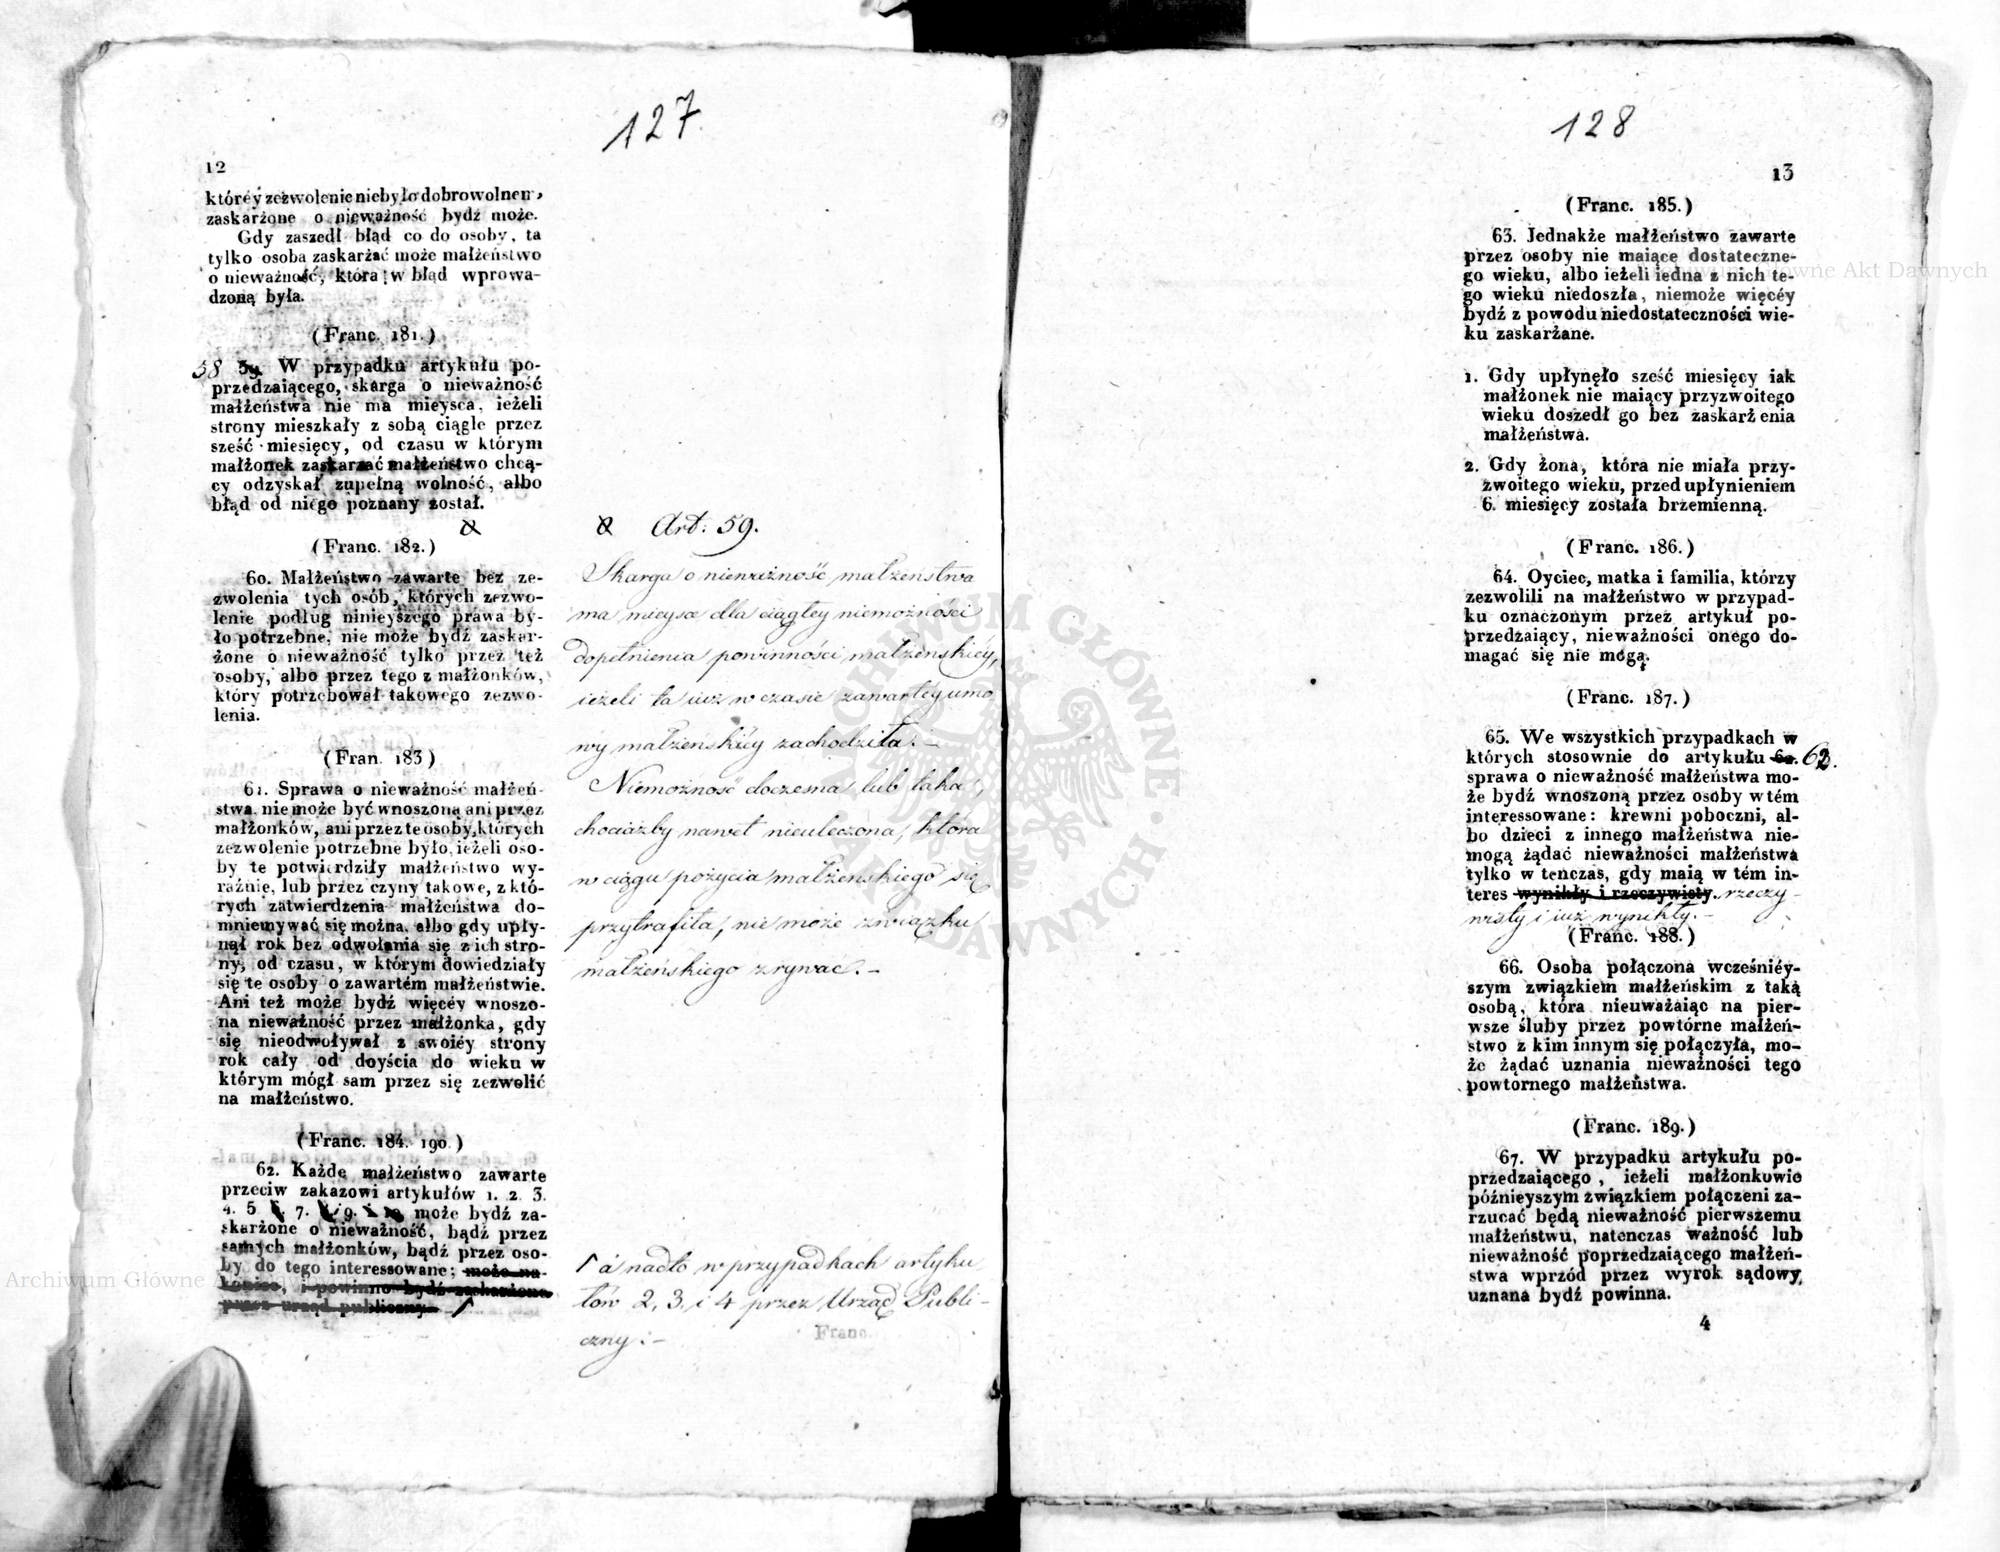 127
12
któréy zezwolenie niebyło dobrowolnem,
zaskarżone o nieważność bydź może.
Gdy zaszedł błąd co do osoby, ta
tylko osoba zaskarżać może małżeństwo
o nieważność, która w błąd wprowa-
dzoną była.
(Franc. 181.)
58 59. W przypadku artykułu po-
przedzaiącego, skarga o nieważność
małżeństwa nie ma mieysca, ieżeli
strony mieszkały z sobą ciągle przez
sześć miesięcy, od czasu w którym
małżonek zaskarżać małżeństwo chcą-
cy odzyskał zupełną wolność, albo
błąd od niego poznany został.
(Franc. 182.)
60. Małżeństwo zawarte bez ze-
zwolenia tych osób, których zezwo-
lenie podług ninieyszego prawa by-
ło potrzebne, nie może bydź zaskar-
żone o nieważność tylko przez też
osoby, albo przez tego z małżonków,
który potrzebował takowego zezwo-
lenia.
(Fran. 183)
61. Sprawa o nieważność małżeń-
stwa nie może być wnoszoną ani przez
małżonków, ani przez te osoby, których
zezwolenie potrzebne było, ieżeli oso-
by te potwierdziły małżeństwo wy-
raźnie, lub przez czyny takowe, z któ-
rych zatwierdzenia małżeństwa do-
mniemywać się można, albo gdy upły-
nął rok bez odwołania się z ich stro-
ny, od czasu, w którym dowiedziały
się te osoby o zawartém małżeństwie.
Ani też może bydź więcéy wnoszo-
na nieważność przez małżonka, gdy
się nieodwoływał z swoiéy strony
rok cały od doyścia do wieku w
którym mógł sam przez się zezwolić
na małżeństwo.
(Franc. 184. 190.)
62. Każde małżeństwo zawarte
przeciw zakazowi artykułów 1. 2. 3.
4. 5 7. 9. może bydź za-
skarżone o nieważność, bądź przez
samych małżonków, bądź przez oso-
by do tego interessowane; może na-
koniec, i powinno bydź zaskarżone
przez urząd publiczny
Art: 59.
Skarga o nieważność małżeństwa
ma mieysce dla ciągłey niemożności
dopełnienia powinności małżeńskiéy,
ieżeli ta iuż w czasie zawartey umo
wy małżeńskiéy zachodziła.–
Niemożność doczesna lub taka,
chociażby nawet nieuleczona, która
w ciągu pożycia małżeńskiego się
przytrafiła, nie może związku
małżeńskiego zrywać.–
a nadto w przypadkach artyku
łów 2, 3 i 4 przez Urząd Publi-
czny.–
Franc.
128
13
(Franc. 185.)
63. Jednakże małżeństwo zawarte
przez osoby nie maiące dostateczne-
go wieku, albo ieżeli iedna z nich te-
go wieku niedoszła, niemoże więcéy
bydź z powodu niedostateczności wie-
ku zaskarżane.
1. Gdy upłynęło sześć miesięcy iak
małżonek nie maiący przyzwoitego
wieku doszedł go bez zaskarżenia
małżeństwa.
2. Gdy żona, która nie miała przy-
zwoitego wieku, przed upłynieniem
6. miesięcy została brzemienną.
(Franc. 186.)
64. Oyciec, matka i familia, którzy
zezwolili na małżeństwo w przypad-
ku oznaczonym przez artykuł po-
przedzaiący, nieważności onego do-
magać się nie mogą.
(Franc. 187.)
65. We wszystkich przypadkach w
których stosownie do artykułu 62.
sprawa o nieważność małżeństwa mo-
że bydź wnoszoną przez osoby w tém
interessowane: krewni poboczni, al-
bo dzieci z innego małżeństwa nie-
mogą żądać nieważności małżeństwa
tylko w tenczas, gdy maią w tém in-
teres wynikły i rzeczywisty. rzeczy-
wisty i iuż wynikły.–
(Franc. 188.)
66. Osoba połączona wcześniéy-
szym związkiem małżeńskim z taką
osobą, która nieuważaiąc na pier-
wsze śluby przez powtórne małżeń-
stwo z kim innym się połączyła, mo-
że żądać uznania nieważności tego
powtornego małżeństwa.
(Franc. 189.)
67. W przypadku artykułu po-
przedzaiącego, ieżeli małżonkowie
późnieyszym związkiem połączeni za-
rzucać będą nieważność pierwszemu
małżeństwu, natenczas ważność lub
nieważność poprzedzaiącego małżeń-
stwa wprzód przez wyrok sądowy
uznana bydź powinna.
4
Archiwum Główne Akt Dawnych
Archiwum Główne Akt Dawnych
ARCHIWUM GŁÓWNE AKT DAWNYCH